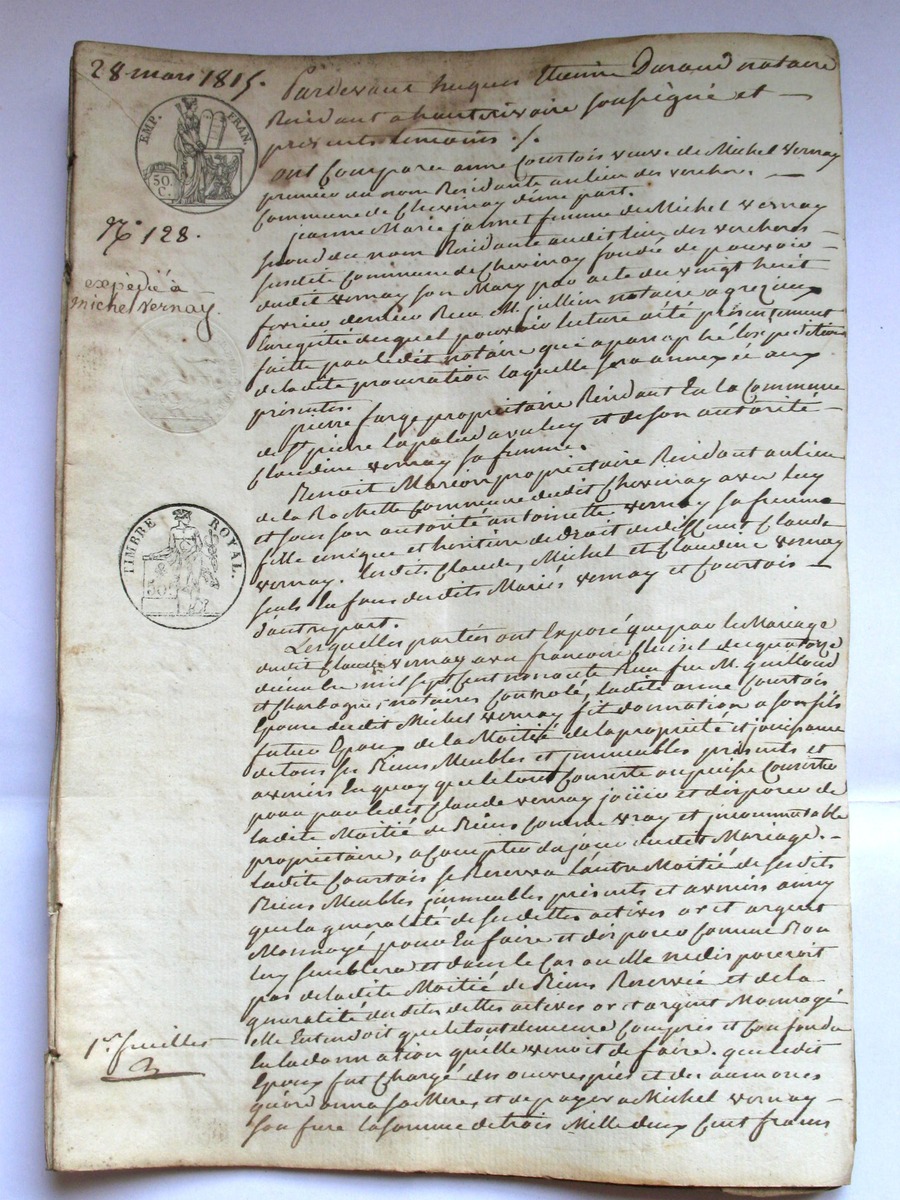 28 mars 1815.
EMP. FRAN.
50. C.
N.º 128.
expédié à
michel vernay.
TIMBRE ROYAL.
50
Pardevant hugues Etienne Durand notaire
Résidant a hauterivoire soussigné et
présents temoins ./.
ont Comparu anne Courtois veuve de Michel vernay
premier du nom Résidante au lieu des vercher
Commune de Chevinay d'une part.
jeanne Marie jasmet femme de Michel vernay
second du nom Résidante audit lieu des verchers
susdite Commune de Chevinay fondée de pouvoir
dudit vernay son Mary par acte du vingt huit
fevrier dernier Reçu M. jullien notaire a grezieux
Enregistré duquel pouvoir lecture a été présentement
faitte par ledit notaire qui a paraphé l'expedition
de ladite procuration laquelle sera annexée aux
présentes.
pierre farge propriétaire Résidant En la Commune
de St pierre lapalud avec luy et de son autorité
Claudine vernay sa femme.
Benoit Marion propriétaire Résidant au lieu
de la Rochette Commune dudit Chevinay avec luy
et sous son autorité antoinette vernay sa femme
fille unique et héritière de Droit de deffunt Claude
vernay. lesdits Claude, Michel et Claudine vernay
seuls Enfans dudits Mariés vernay et Courtois
d'autre part.
Lesquelles parties ont Exposé que par le Mariage
dudit Claude vernay avec francoise du quatorze
décembre mil sept cent nonante Reçu par M. guillaud
et Charbogne notaires Controlé, ladite anne Courtois
Epouse dudit Michel vernay fit donnation a son fils
futur Epoux de la Moitié de la propriété et jouissance
de tous ses Biens Meubles et jmmeubles présents et
avenirs En quoy que le tout Consiste ou puisse Consister
pour par ledit Claude vernay jouir et disposer de
ladite Moitié de Biens Comme vray et jncommutable
propriétaire, a Compter du jour dudit Mariage.
ladite Courtois se Reserva l'autre Moitié de sesdits
Biens Meubles jmmeubles présents et avenirs ainsy
que la generalité de ses dettes actives or et argent
Monnoyé pour En faire et disposer Comme Bon
luy semblera et dans le Cas ou elle ne disposeroit
pas de ladite Moitié de Biens Reservée et de la
generalité desdits dettes actives or et argent Monnoyé
elle Entendoit que le tout demeure Compris et Confondu
En la donnation qu'elle venoit de faire. que ledit
Epoux fut Chargé des oeuvres pies et des aumones
qu'ordonna sa Mere, et de payer a Michel vernay
son frere la somme de trois Mille deux Cent francs
1er. feuilles